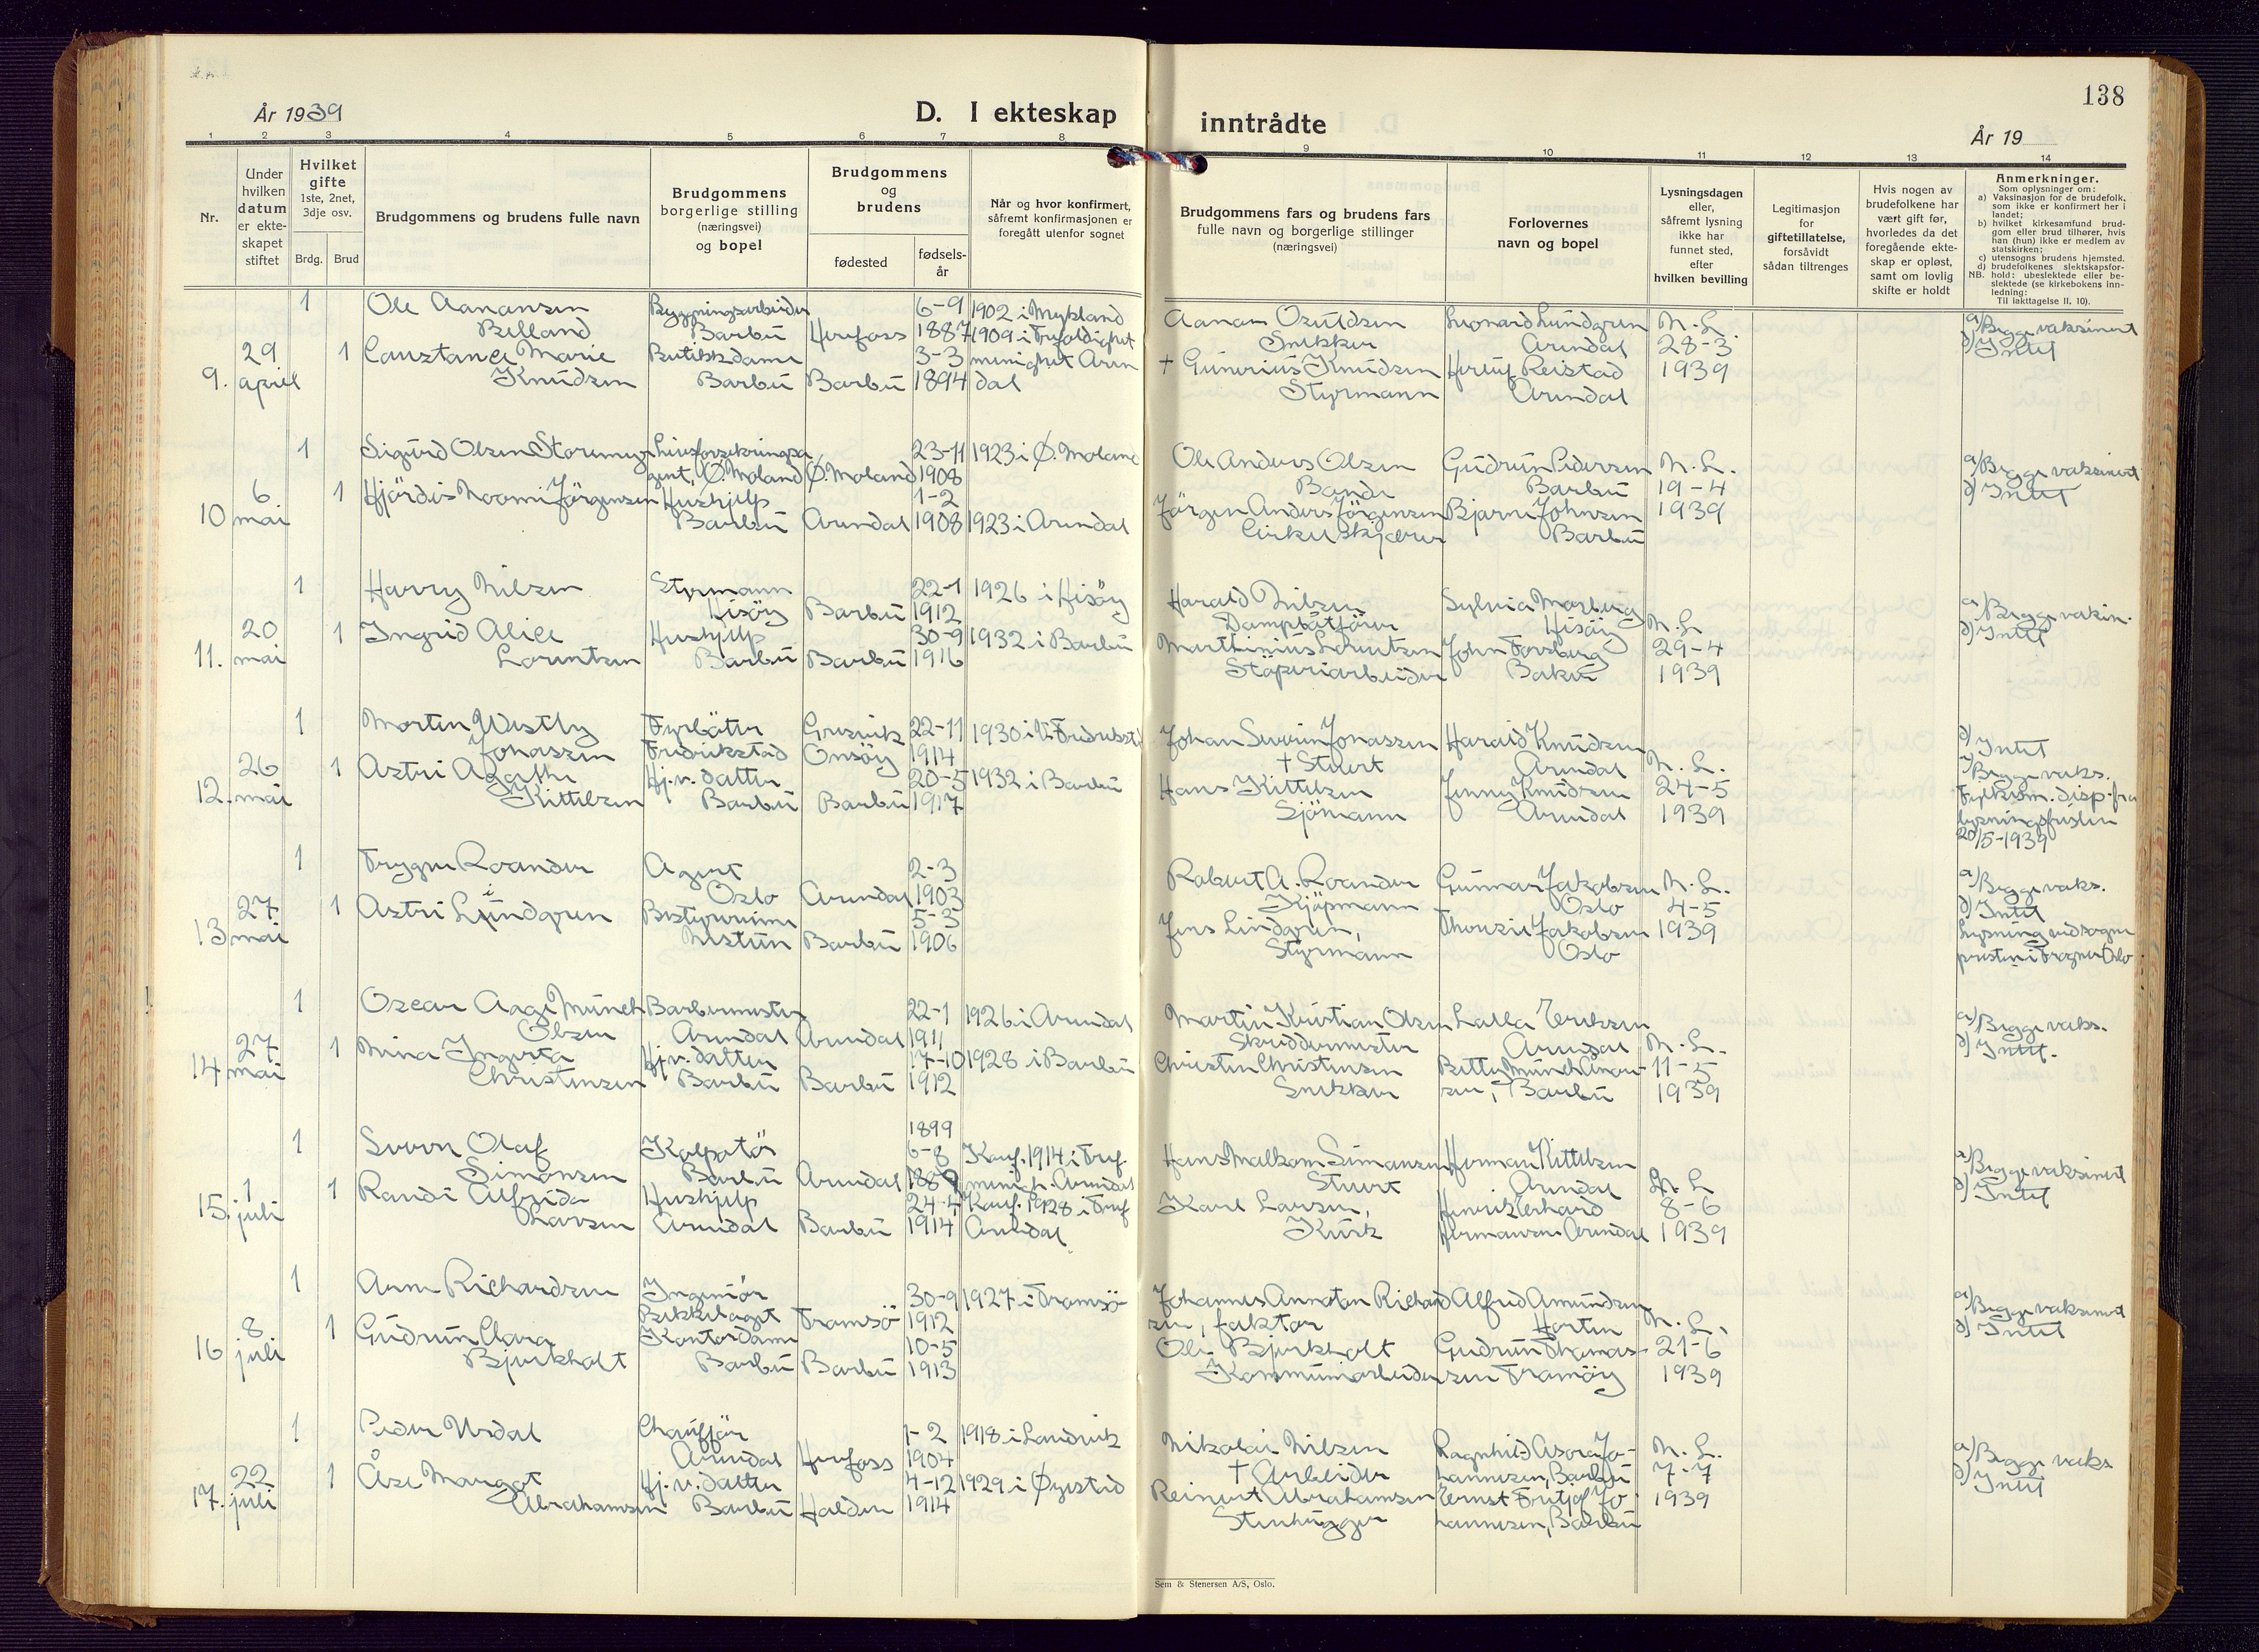 138
År 1939
D. I ekteskap
inntrådte
År 19
1 2 3 4 5 6 7 8 9 10 11 12 13 14
Nr.
Under
hvilken
datum
er ekte-
skapet
stiftet
Hvilket
gifte
1ste, 2net,
3dje osv.
Brdg. Brud
Brudgommens og brudens fulle navn
Brudgommens
borgerlige stilling
(næringsvei)
og bopel
Brudgommens
og
brudens
fødested
fødsels-
år
Når og hvor konfirmert,
såfremt konfirmasjonen er
foregått utenfor sognet
Brudgommens fars og brudens fars
fulle navn og borgerlige stillinger
(næringsvei)
Forlovernes
navn og bopel
Lysningsdagen
eller,
såfremt lysning
ikke har
funnet sted,
efter
hvilken bevilling
Legitimasjon
for
giftetillatelse,
forsåvidt
sådan tiltrenges
Hvis nogen av
brudefolkene har
vært gift før,
hvorledes da det
foregående ekte-
skap er opløst,
samt om lovlig
skifte er holdt
Anmerkninger.
Som oplysninger om:
a) Vaksinasjon for de brudefolk,
som ikke er konfirmert her i
landet;
b) hvilket kirkesamfund brud-
gom eller brud tilhører, hvis
han (hun) ikke er medlem av
statskirken;
c) utensogns brudens hjemsted.
d) brudefolkenes slektskapsfor-
NB. hold: ubeslektede eller be-
slektede (se kirkebokens inn-
ledning:
Til iakttagelse II. 10).
1 Ole Aanansen Bygningsarbeider 6-9 1902 i Mykland
Belland Barbu Herefoss 1887 1909 i Trefoldighet
29 1 Constance Marie Butikkdame 3-3 menighet Aren
9. april Knudsen Barbu Barbu 1894 dal
Aanan Osuldsen Leonard Lundgren N. L. a) Begge vaksinert
Snekker Arendal 28-3 d) Intet
+ Gunerius Knudsen Herluf Reistad 1939
Styrmann Arendal
1 Sigurd Olsen Storemyr Livsforsikringsa 23-11 1923 i Ø. Moland
gent, Ø. Moland Ø. Moland 1908
6. 1 Hjördis Noomi Jörgensen Hushjelp 1-2
10 mai Barbu Arendal 1908 1923 i Arendal
Ole Anders Olsen Gudrun Pedersen N. L. a) Begge vaksinert
Bonde Barbu 19-4 d) Intet
Jörgen Anders Jörgensen Bjarne Johnsen 1939
Cirkelskjærer Barbu
1 Harry Nilsen Styrmann 22-1 1926 i Hisöy
Hisöy Barbu 1912
20 1 Ingrid Alice Hushjelp 30-9 1932 i Barbu
11. mai Lorentzen Barbu Barbu 1916
Harald Nilsen Sylvia Morberg a) Begge vaksin.
Dampbåtförer Hisöy N. L d) Intet
Marthinius Lorentzen John Forsberg 29-4
Stöperiarbeider Barbu 1939
1 Morten Westby Fyrböter Gresvik 22-11 1930 i V. Fredrikstad
Jonassen Fredrikstad Onsöy 1914
26 1 Astri Agathe Hj.v. datter 20-5 1932 i Barbu
12. mai Kittelsen Barbu Barbu 1917
Johan Severin Jonassen Harald Knudsen d) Intet
+ Stuert Arendal N. L. a) Begge vaks.
Hans Kittelsen Jenny Knudsen 24-5 Fylkesm. disp. fra
Sjömann Arendal 1939 lysningsfristen
20/5-1939
1 Trygve Roander Agent 2-3
Oslo Arendal 1903
27. 1 Astri Lindgren Bestyrerinne 5-3
13 mai Nestun Barbu 1906
Robert A. Roander Gunnar Jakobsen N. L. a) Begge vaks.
Kjöpmann Oslo 4-5 d) Intet
Jens Lindgren, Jakobsen 1939 Lysning ved sogne
Styrmann Oslo presten i Frogner Oslo
1 Oscar Aage Münch Barbermester 22-1 1926 i Arendal
Olsen Arendal Arendal 1911
27 1 Nina Ingerta Hj.v. datter 17-10 1928 i Barbu
14 mai Christensen Barbu Barbu 1912
Martin Kristian Olsen Lalla Eriksen a) Begge vaks.
Skreddermester Arendal N. L. d) Intet.
Christen Christensen Betty Münch 11-5
Snekker sen, Barbu 1939
1899
1 Svern Olaf Kolportör 6-8 Konf. 1914 i Tref.
Simonsen Barbu Arendal 1889 menigh. Arendal
1 1 Randi Alfrida Hushjelp 24-4 Konf. 1928 i Tref
15. juli Larsen Arendal Barbu 1914 Arendal
Hans Malkom Simonsen Herman Kittelsen a) Begge vaksinert
Stuert Arendal N. L d) Intet
Karl Larsen, Henrik Erhard 8-6
Kusk Hermansen Arendal 1939
1 Arne Richardsen Ingeniör 30-9 1927 i Tromsö
Bekkelaget Tromsö 1912
8 1 Gudrun Clara Kontordame 10-5
16 juli Bjerkholt Barbu Barbu 1913
Johannes Annotan Richard Alfred Amundsen a) Begge vaksinert
sen, faktor Horten N. L. d) Intet
Ole Bjerkholt Gudrun Thomas- 21-6
Kommunearbeider sen Tromöy 1939
1 Peder Urdal Chaufför 1-2 1918 i Landvik
Arendal Herefoss 1904
22 1 Åse Margot Hj.v. datter 4-12 1929 i Øyestad
17. juli Abrahamsen Barbu Halden 1914
Nikolai Nilsen Ragnhild Asora Jo- N. L. a) Begge vaks
+ Arbeider hannesen, Barbu 7-7 d) Intet
Reinert Abrahamsen Ernst Fritjof Jo- 1939
Stenhugger hannesen, Barbu
Sem & Stenersen A/S, Oslo.